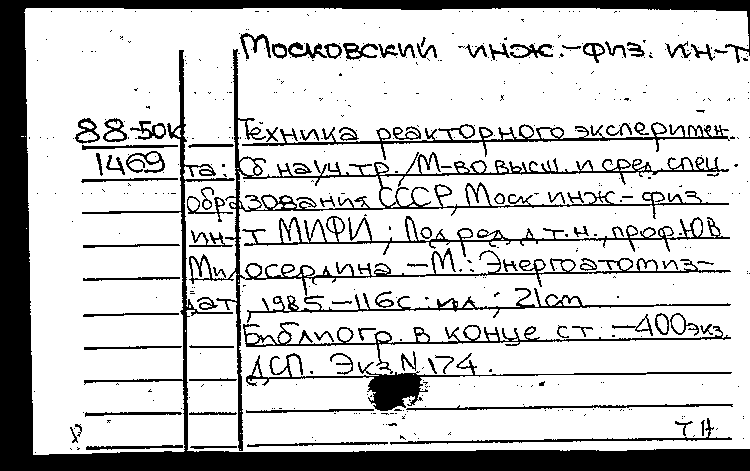 Московский инж.-физ. ин-т.
88-50К Техника реакторного эксперимен-
1469 та: Сб. науч. тр. /М-во высш. и сред. спец.
образования СССР, Моск инж.-физ.
ин-т МИФИ; Под ред. д.т.н., проф. Ю В
Милосердина.-М.: Энергоатомиз-
дат, 1985.-116с.:ил.; 21cm
Библиогр. в конце ст.-400экз.
ДСП. Экз. N 174.
Т.Н